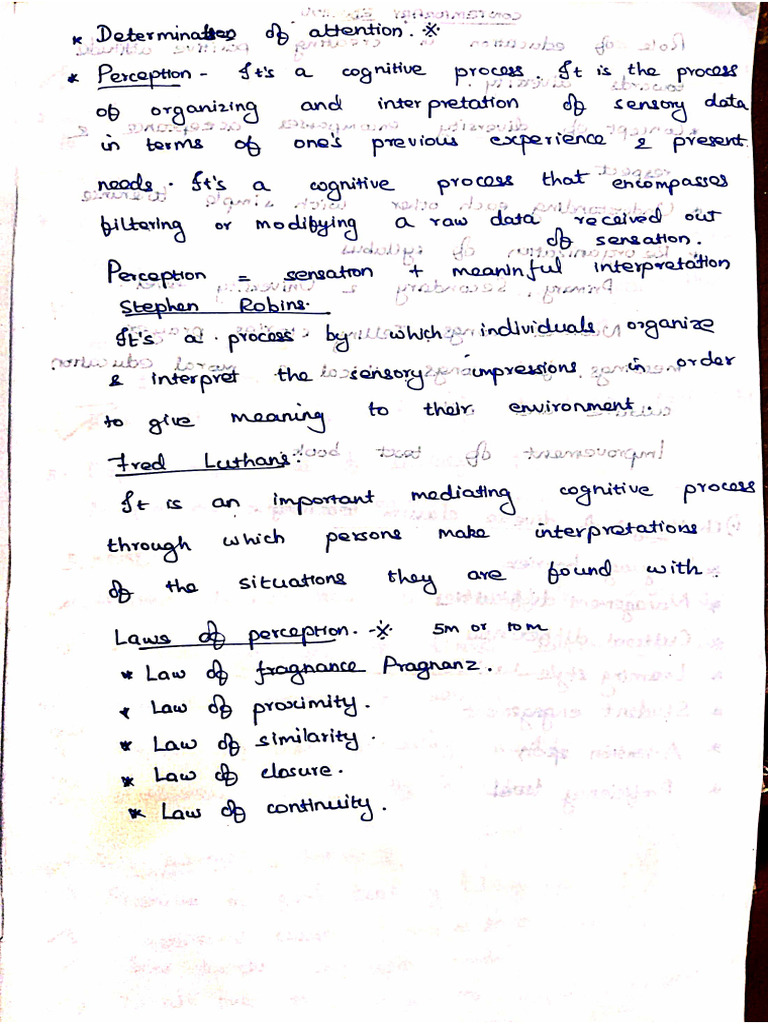 * Determinates of attention. ※
* Perception - It's a cognitive process. It is the process
of organizing and interpretation of sensory data
in terms of one's previous experience & present
needs. It's a cognitive process that encompasses
filtering or modifying a raw data received out
of sensation.
Perception = sensation + meaninful interpretation
Stephen Robins.
It's a process by which individuals organize
& interpret the sensory impressions in order
to give meaning to their environment.
Fred Luthans:
It is an important mediating cognitive process
through which persons make interpretations
of the situations they are found with.
Laws of perception. -※ 5m or 10m
* Law of fragnance Pragnanz.
* Law of proximity.
* Law of similarity.
* Law of closure.
* Law of continuity.